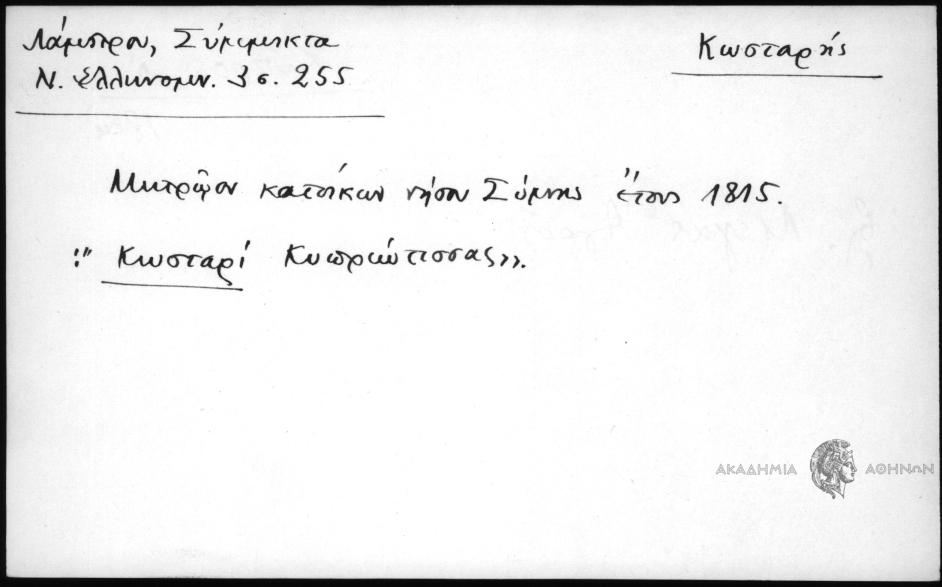 Λάμπρου, Σύμμικτα
Κωσταρής
Ν. Ελληνομν. 3 σ. 255
Μητρῷον κατοίκων νήσου Σύμης ἔτους 1815.
:" Κωσταρί Κυπριώτισσας».
ΑΚΑΔΗΜΙΑ ΑΘΗΝΩΝ